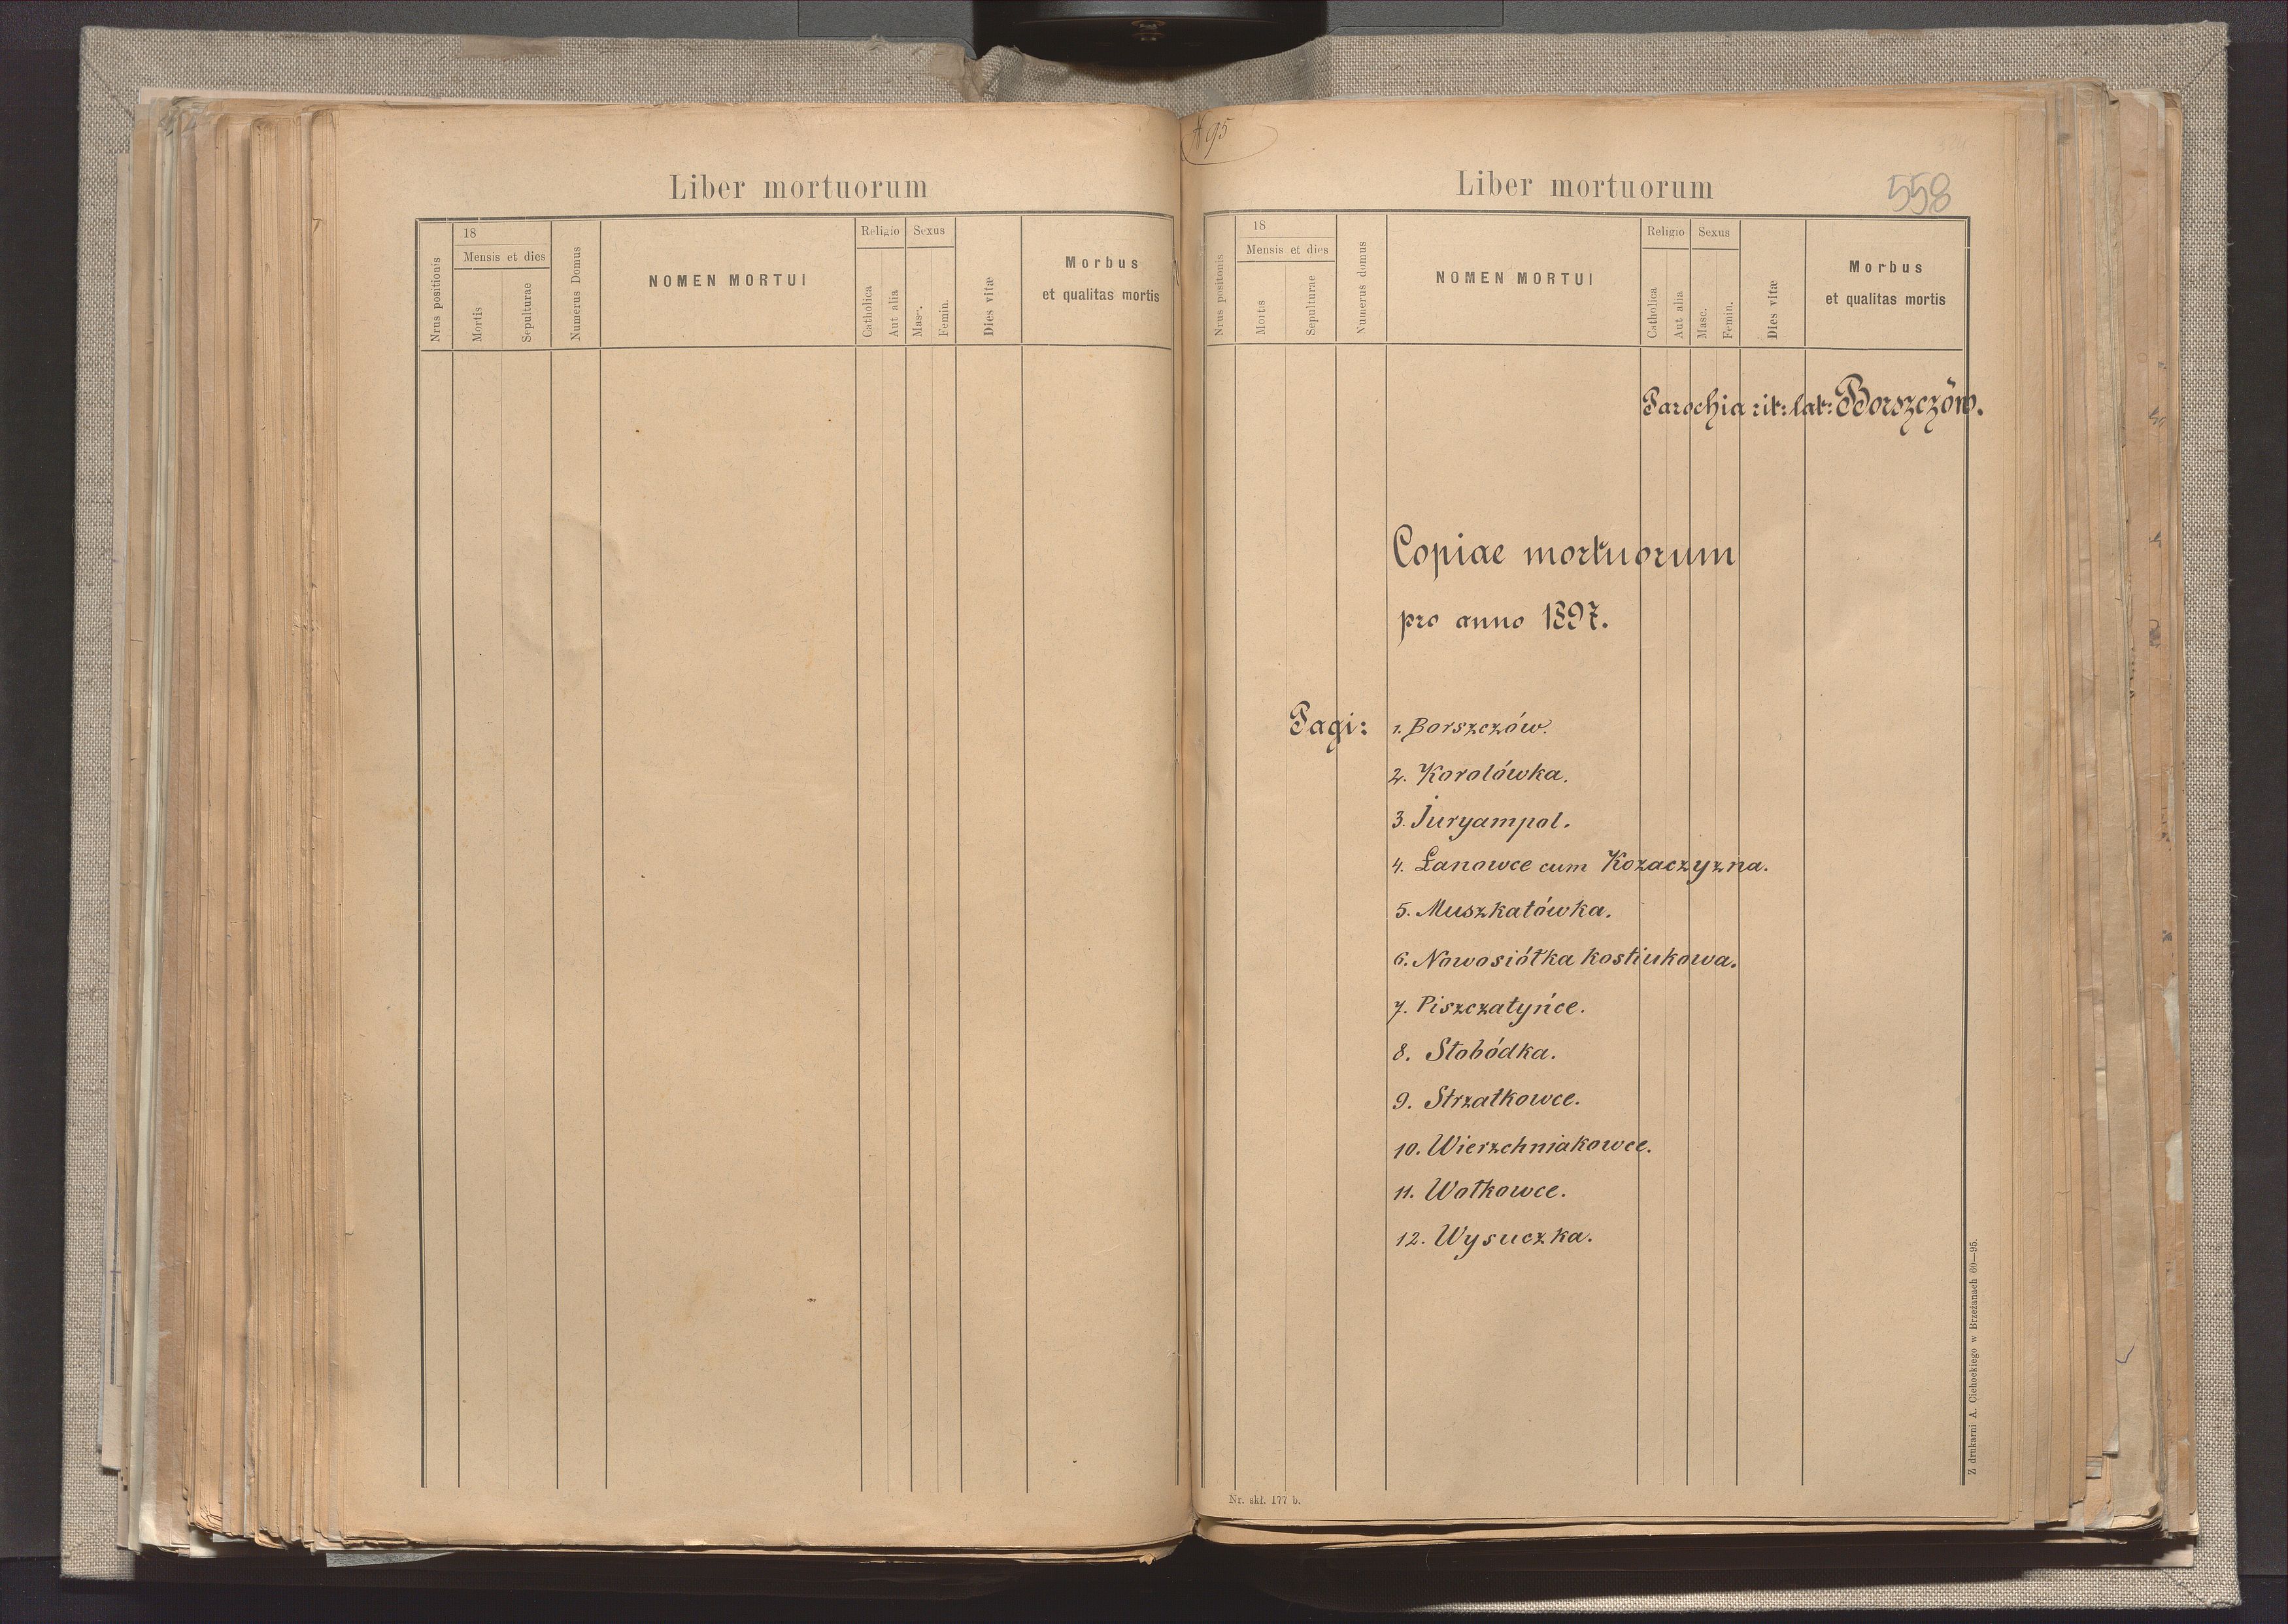 Liber mortuorum
Nrus positionis
18
Mensis et dies
Mortis
Sepulturae
Numerus Domus
NOMEN MORTUI
Religio
Catholica
Aut alia
Sexus
Masc.
Femin.
Dies vitæ
Morbus
et qualitas mortis
95
Liber mortuorum
558
Nrus positonis
18
Mensis et dies
Mortis
Sepulturae
Numerus domus
NOMEN MORTUI
Religio
Catholica
Aut alia
Sexus
Masc.
Femin.
Dies vitæ
Morbus
et qualitas mortis
Parochia rit: lat: Borszczów.
Copiae mortuorum
pro anno 1897.
Pagi: 1. Borszczów.
2. Korolówka.
3. Juryampol.
4. Łanowce cum Kozaczyzna.
5. Muszkatówka.
6. Nowosiółka kostiukowa.
7. Piszczatyńce.
8. Słobódka.
9. Strzałkowce.
10. Wierzchniakowce.
11. Wołkowce.
12. Wysuczka.
Nr. skł. 177 b.
Z drukarni A. Cichockiego w Brzeżanach 60—95.